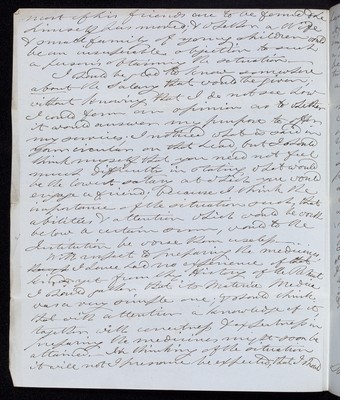 most of his friends are to be found & he
himself has moved, & whether a Wife
& small family of young children will
be an insuperable objection to such
a persons obtaining the situation.
I should be glad to know somewhere
about the Salary that would be given;
without knowing that I do not see how
I could form an opinion as to whether
it would answer my purpose to offer
my services; I noticed what is said in
your circular on that head, but I should
think myself that you need not feel
much difficulty in stating what would
be the lowest certain at which you would
engage a friend; because I think the
importance of the situation such, that
abilities & attention which would be worth
below a certain sum, would to the
Institution be worse than useless.
With respect to preparing the medicines,
though I have had no experience of that
kind, yet from the History of the Retreat
I should gather that its Materia Medica
was a very simple one; & I should think
that with attention a knowledge of it,
together with correctness & expertness in
preparing the medicines might soon be
attained. In thinking of the situation
it will not I presume be expected that I should